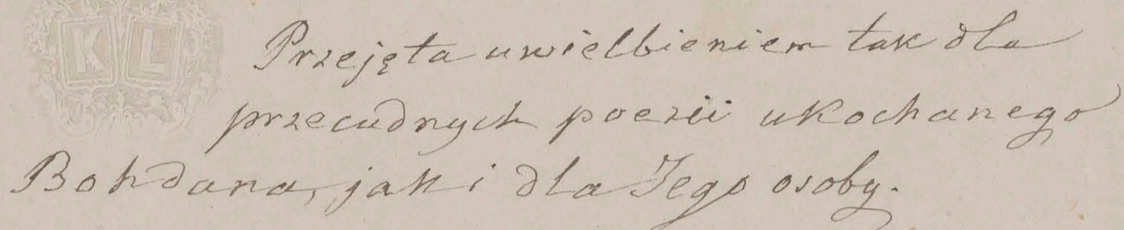 K L
Przejęta uwielbieniem tak dla
przecudnych poezii ukochanego
Bohdana, jak i dla Jego osoby.